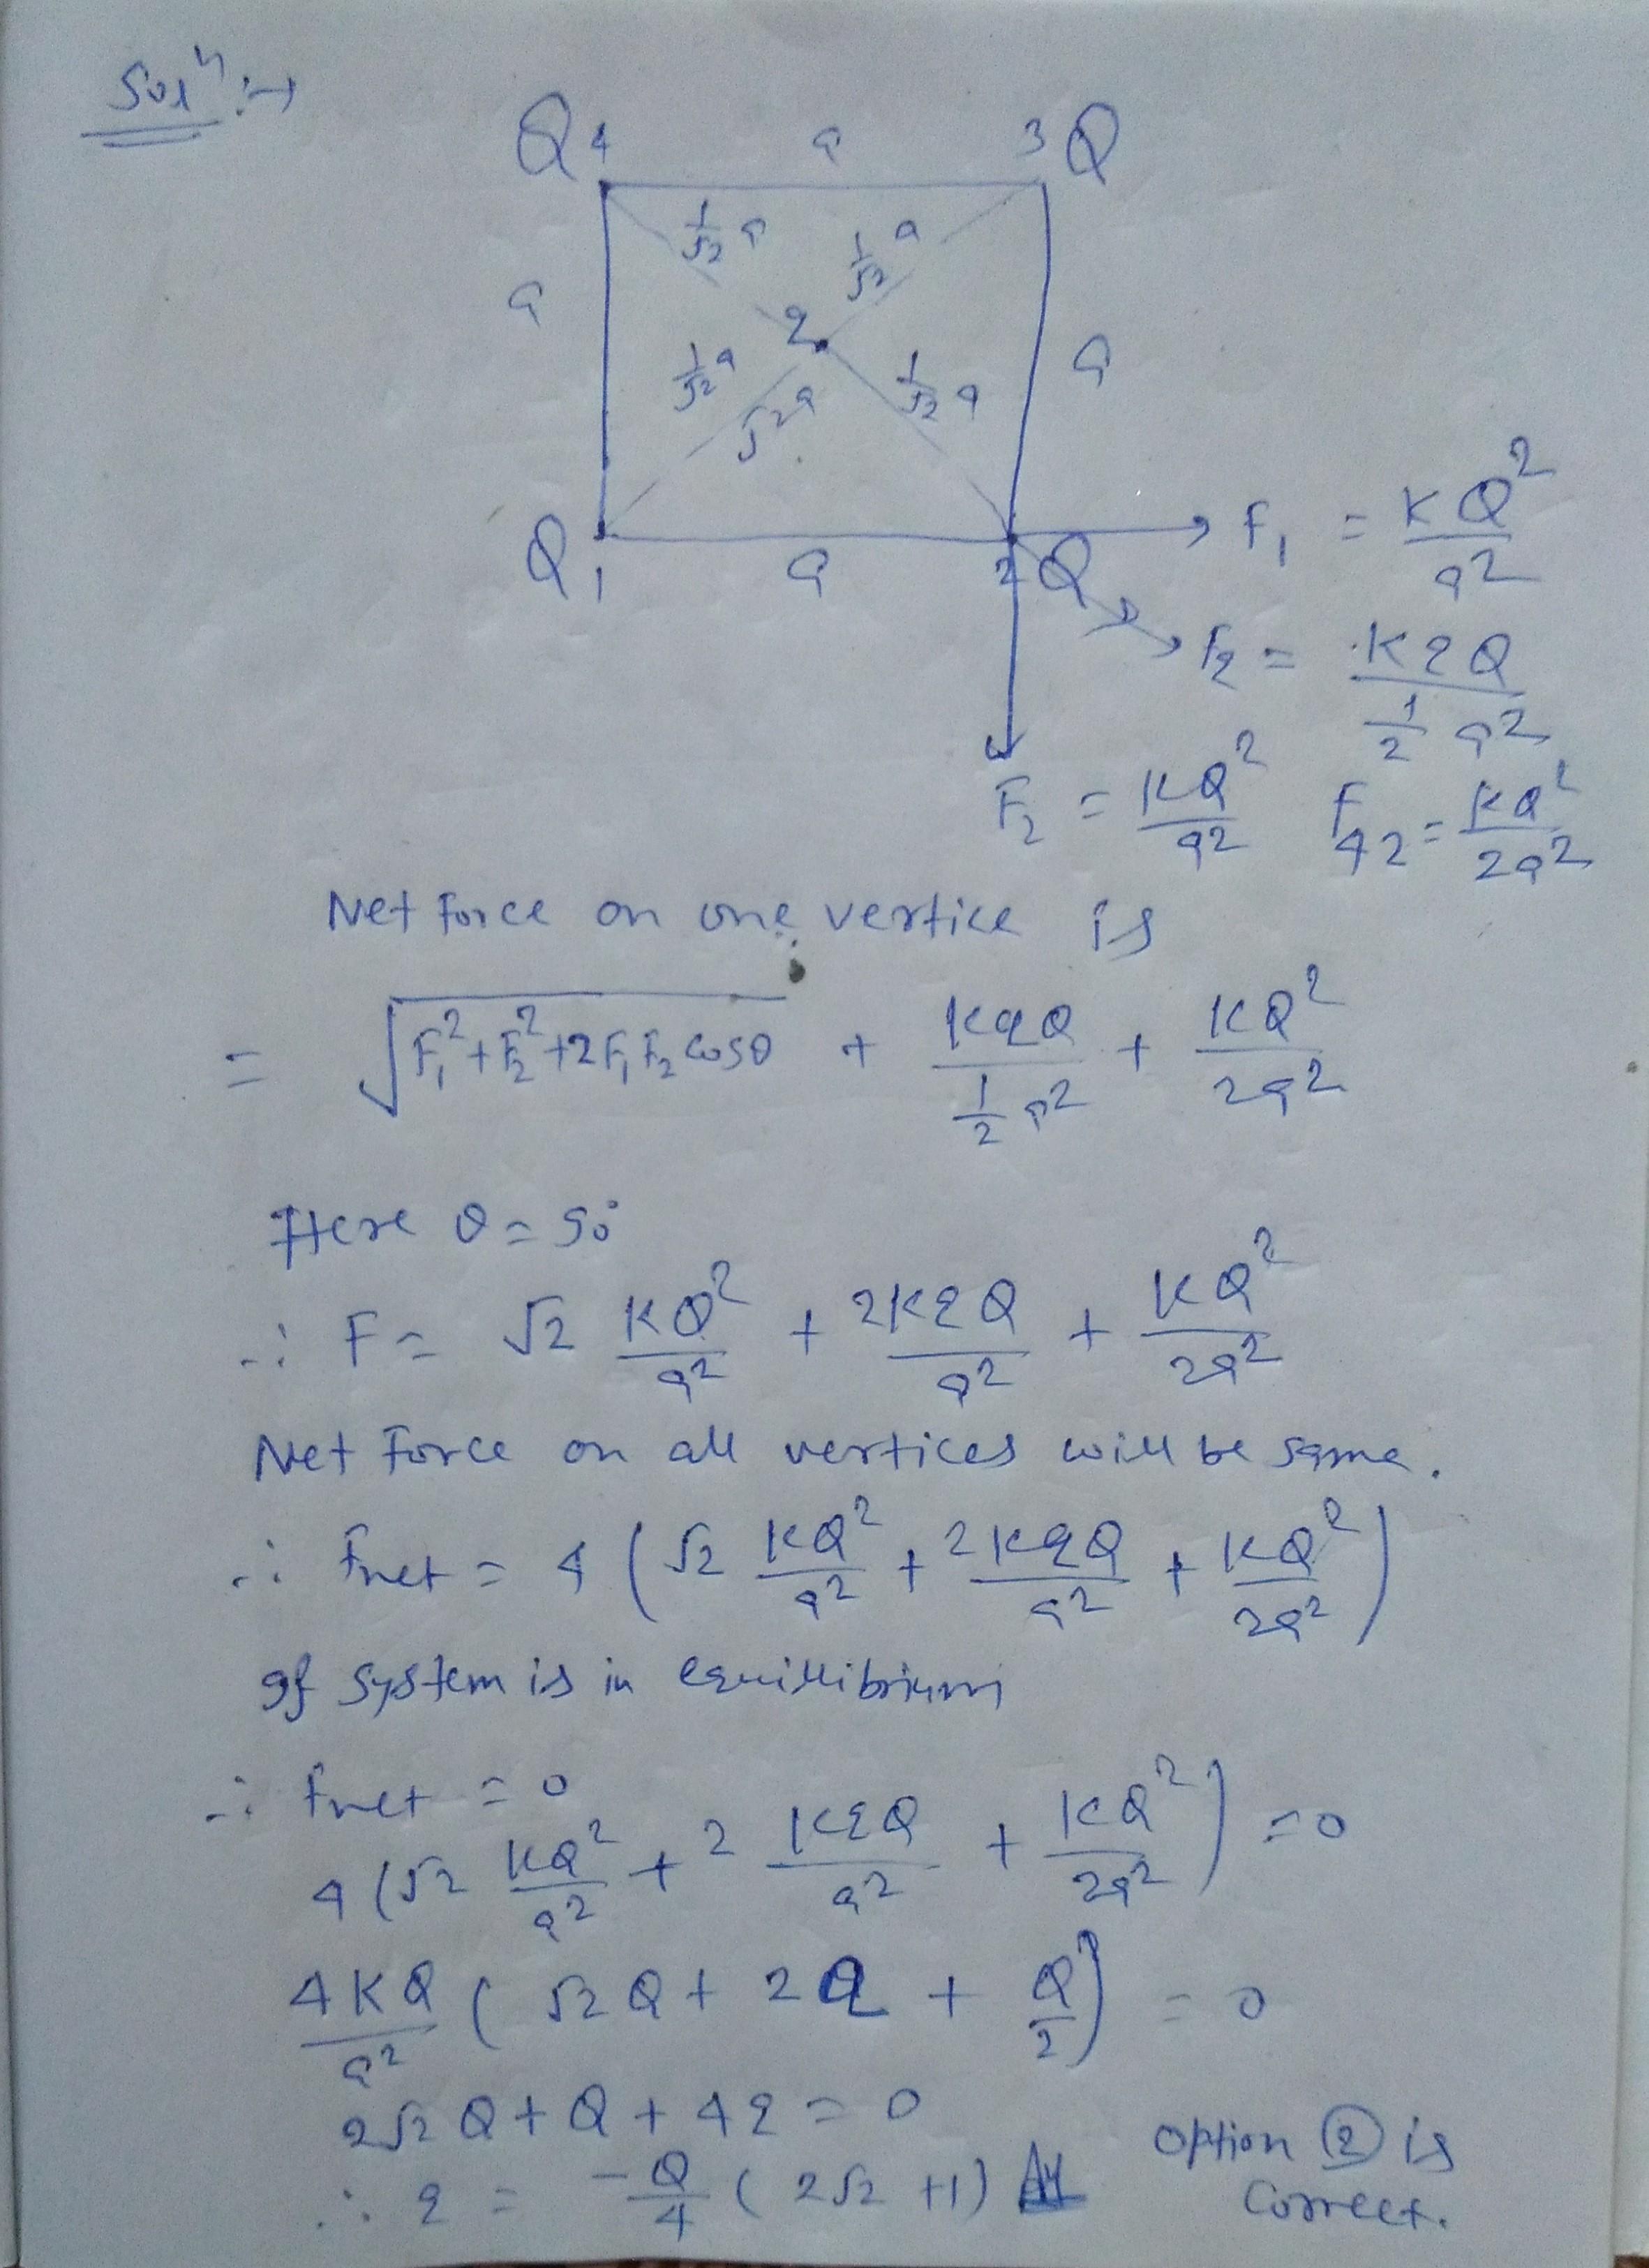 Solⁿ :→
Q 4 a 3 Q
1/√2 a 1/√2 a
a q a
1/√2 a √2a 1/√2 a
Q 1 a 2 Q F₁ = KQ²/a²
Fq = KqQ / (1/2 a²)
F₂ = KQ²/a² F₄₂ = KQ²/2a²
Net force on one vertice is
= √(F₁² + F₂² + 2F₁F₂ cosθ) + KqQ / (1/2 a²) + KQ²/2a²
Here θ = 90°
∴ F = √2 KQ²/a² + 2KqQ/a² + KQ²/2a²
Net Force on all vertices will be same.
∴ Fnet = 4 (√2 KQ²/a² + 2KqQ/a² + KQ²/2a²)
If system is in equillibrium
∴ Fnet = 0
4 (√2 KQ²/a² + 2 KqQ/a² + KQ²/2a²) = 0
4KQ/a² ( √2 Q + 2q + Q/2 ) = 0
2√2 Q + Q + 4q = 0
∴ q = -Q/4 ( 2√2 + 1) Option ② is
correct.